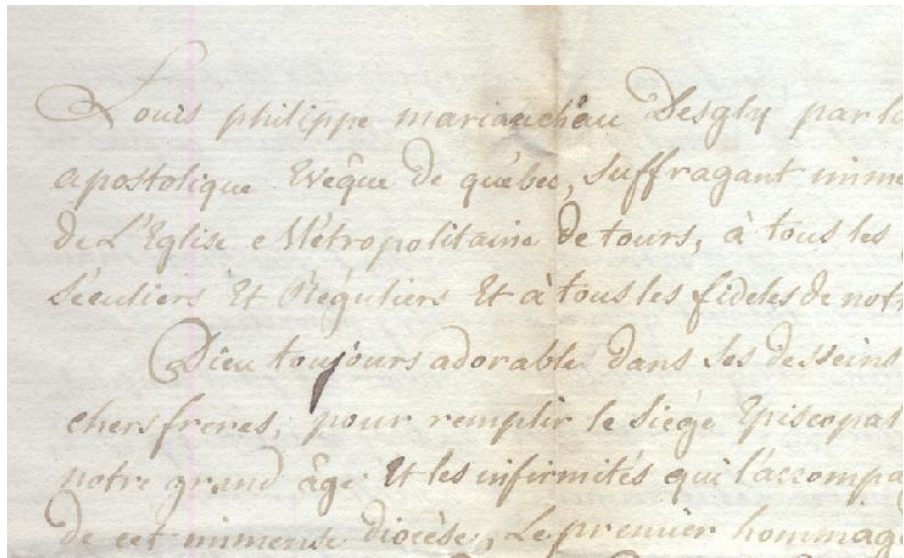 Louis philippe mariauchau Desgly par la
apostolique Evêque de québec, suffragant imme
de L'Eglise Métropolitaine de tours, à tous les
séculiers Et Réguliers Et à tous les fideles de notr
Dieu toujours adorable dans ses desseins
chers freres, pour remplir le siége Episcopal
notre grand âge Et les infirmités qui l'accompa
de cet immense diocèse, Le premier hommage